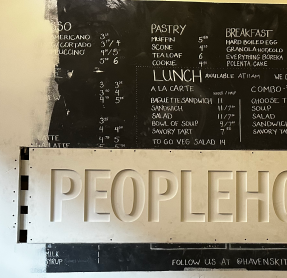 SO
MERICANO 3"
CORTADO 3"/4
PUCCINO 4"/5
5" 6
3" 3"
ATTE
LATTE
PASTRY
MUFFIN 5"
SCONE 4"
TEA LOAF 6
COOKIE 4"
BREAKFAST
HARD BOILED EGG
GRANOLA
EVERYTHING BUREKA
POLENTA CAKE
LUNCH AVAILABLE AT 11AM WE
A LA CARTE
BAGUETTE SANDWICH 11
SANDWICH
SALAD 11/7"
BOWL OF SOUP 9/7"
SAVORY TART
TO GO VEG SALAD 14
COMBO
CHOOSE T
SOUP
SALAD
SANDWIC
SAVORY TA
PEOPLEHO
MILK
SYRUP
FOLLOW US AT @HAVENSKIT